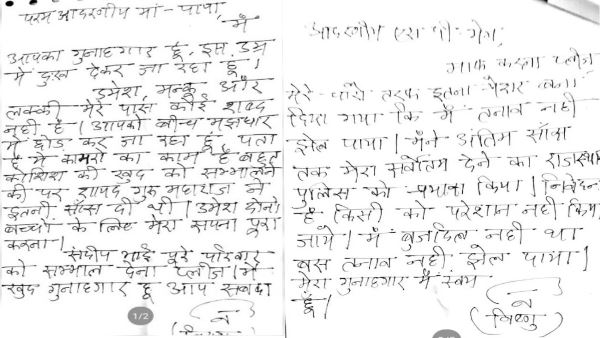 परम आदरणीय मां - पापा,
मैं
आपका गुनाहगार हूँ, इस उम्र
में दुःख देकर जा रहा हूँ।
उमेश, मन्कू और
लक्की मेरे पास कोई शब्द
नही है। आपको बीच मझधार
में छोड़ कर जा रहा हूं, पता
है मैं कायरों का काम है बहुत
कोशिश की खुद को सम्भालने
की पर शायद गुरू महाराज ने
इतनी साँस दी थी। उमेश दोनो
बच्चो के लिए मेरा सपना पूरा
करना।
संदीप भाई पूरे परिवार
को सम्भाल देना प्लीज। मैं
खुद गुनाहगार हूं आप सबका
1/2
(विष्णु)
आदरणीय एस पी मेम,
माफ करना प्लीज
मेरे चारों तरफ इतना प्रैशर बना
दिया गया कि मैं तनाव नही
झेल पाया। मैंने अंतिम साँस
तक मेरा सर्वोतम देने का राजस्थान
पुलिस को प्रयास किया। निवेदन
है किसी को परेशान नही किया
जाये। मैं बुजदिल नही था
बस तनाव नही झेल पाया।
मेरा गुनाहगार मैं स्वंय
हूँ।
(विष्णु)